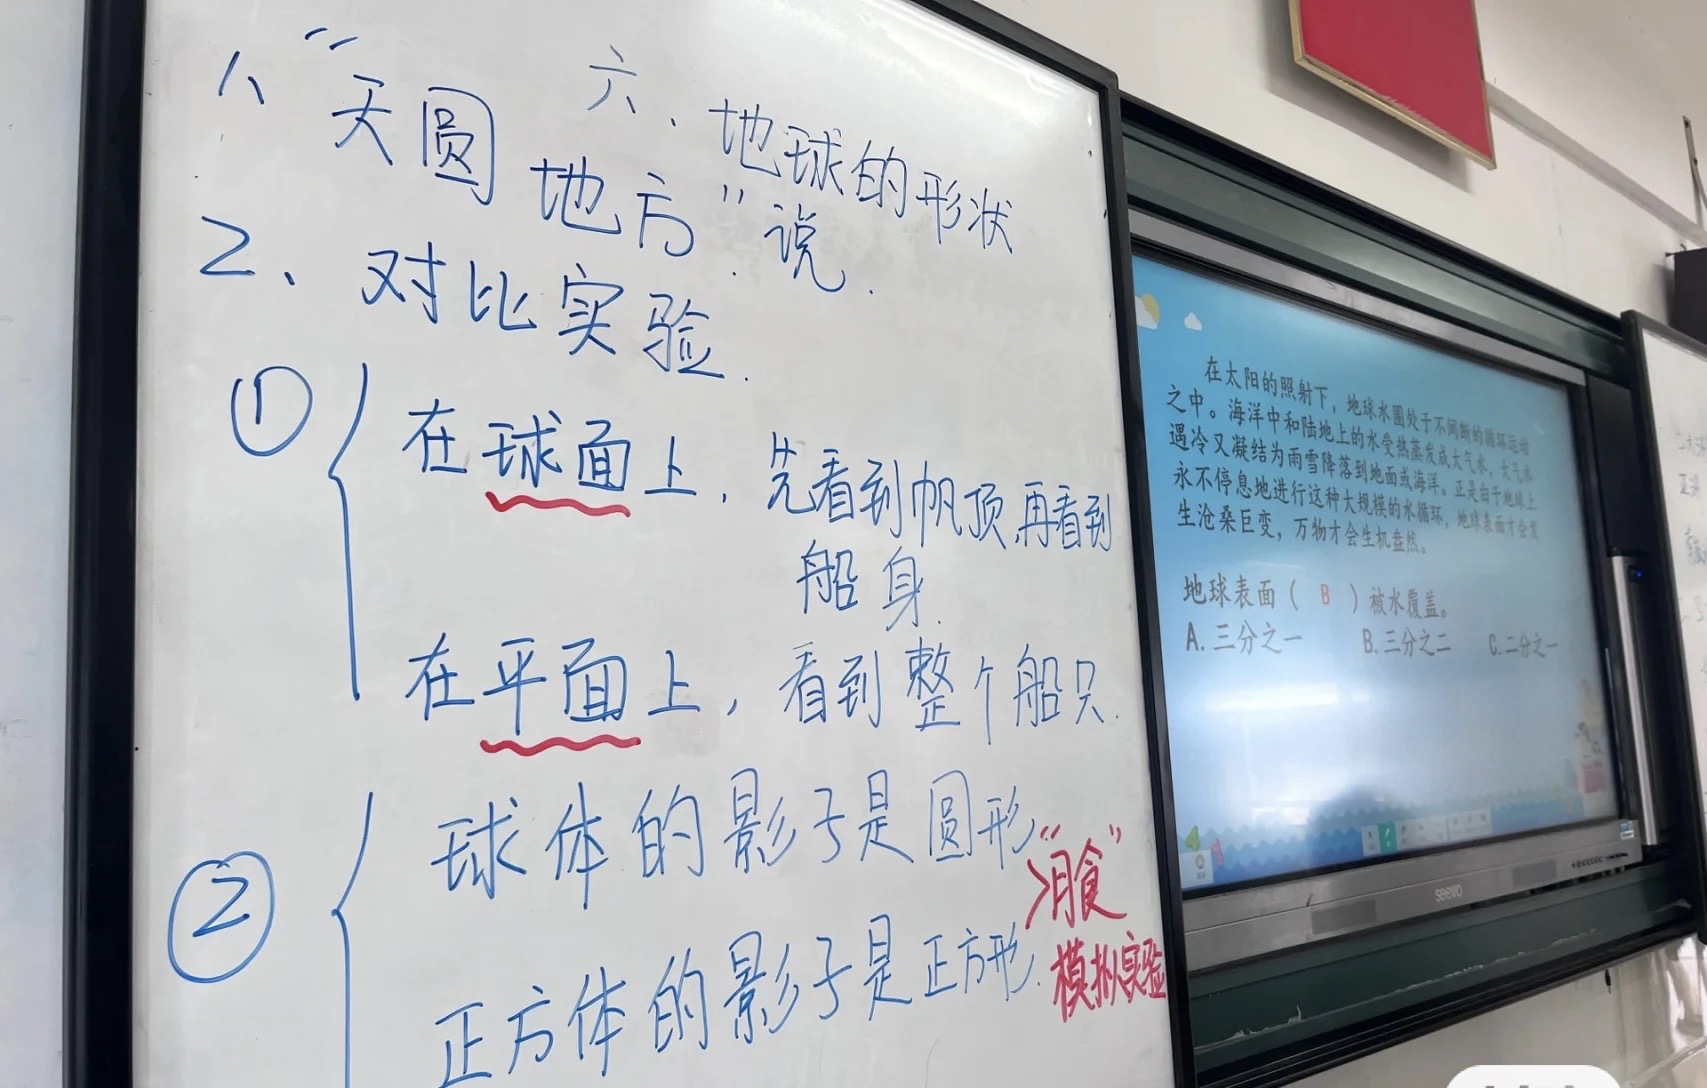 六、地球的形状
1、“天圆地方”说.
2、对比实验.
① 在球面上,先看到帆顶,再看到
船身.
在平面上,看到整个船只.
② 球体的影子是圆形
正方体的影子是正方形.
“月食”
模拟实验
在太阳的照射下，地球水圈处于不间断的循环运动
之中。海洋中和陆地上的水受热蒸发成大气水，大气水
遇冷又凝结为雨雪降落到地面或海洋。正是由于地球上
永不停息地进行这种大规模的水循环，地球表面才会发
生沧桑巨变，万物才会生机盎然。
地球表面（ B ）被水覆盖。
A.三分之一 B.三分之二 C.二分之一
seewo